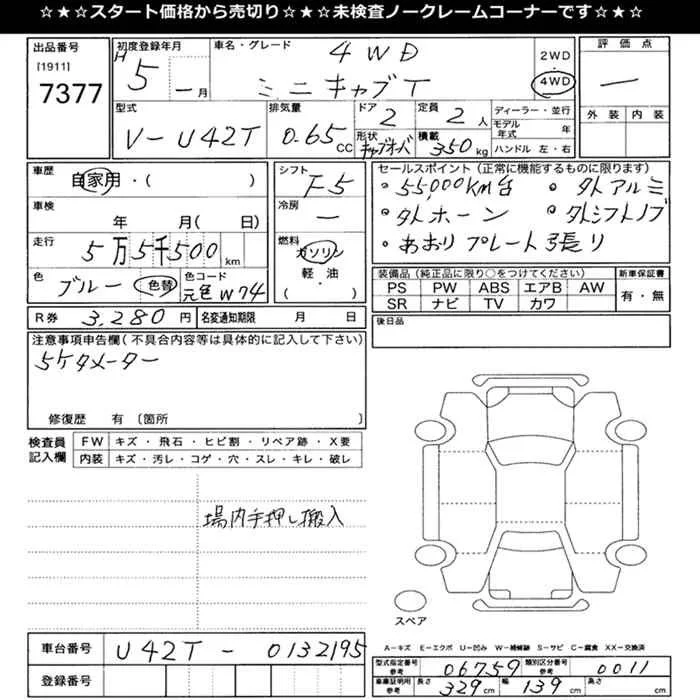 ☆★☆スタート価格から売切り☆★☆未検査ノークレームコーナーです☆★☆
出品番号
[1911]
7377
初度登録年月
H 5 年 ー 月
車名・グレード
4WD
ミニキャブT
2WD
4WD
評価点
ー
外装 内装
型式
V-U42T
排気量
0.65 CC
ドア
2
形状
キャブオーバ
定員
2 人
積載
350 kg
ディーラー・並行
モデル年式 年
ハンドル 左・右
車歴
自家用・( )
車検
年 月( 日)
走行
5万5千500 km
色
ブルー 色替
色コード
元色 W74
シフト
F5
冷房
ー
燃料
ガソリン
軽・油
( )
セールスポイント(正常に機能するものに限ります)
・55,000km台 ・外アルミ
・外ホーン ・外シフトノブ
・あおりプレート張り
装備品(純正品に限り○をつけてください)
PS PW ABS エアB AW
SR ナビ TV カワ
新車保証書
有・無
R券 3,280 円
名変通知期限 月 日
後日品
注意事項申告欄(不具合内容等は具体的に記入して下さい)
5ケタメーター
修復歴 有〔箇所 〕
検査員記入欄
FW キズ・飛石・ヒビ割・リペア跡・X要
内装 キズ・汚レ・コゲ・穴・スレ・キレ・破レ
場内手押し搬入
スペア
A-キズ E-エクボ U-凹み W-補修跡 S-サビ C-腐食 XX-交換済
車台番号 U42T - 0132195
登録番号
型式指定番号 参考 06759 類別区分番号 参考 0011
車庫証明用 参考 長さ 329 cm 幅 139 cm 高さ cm